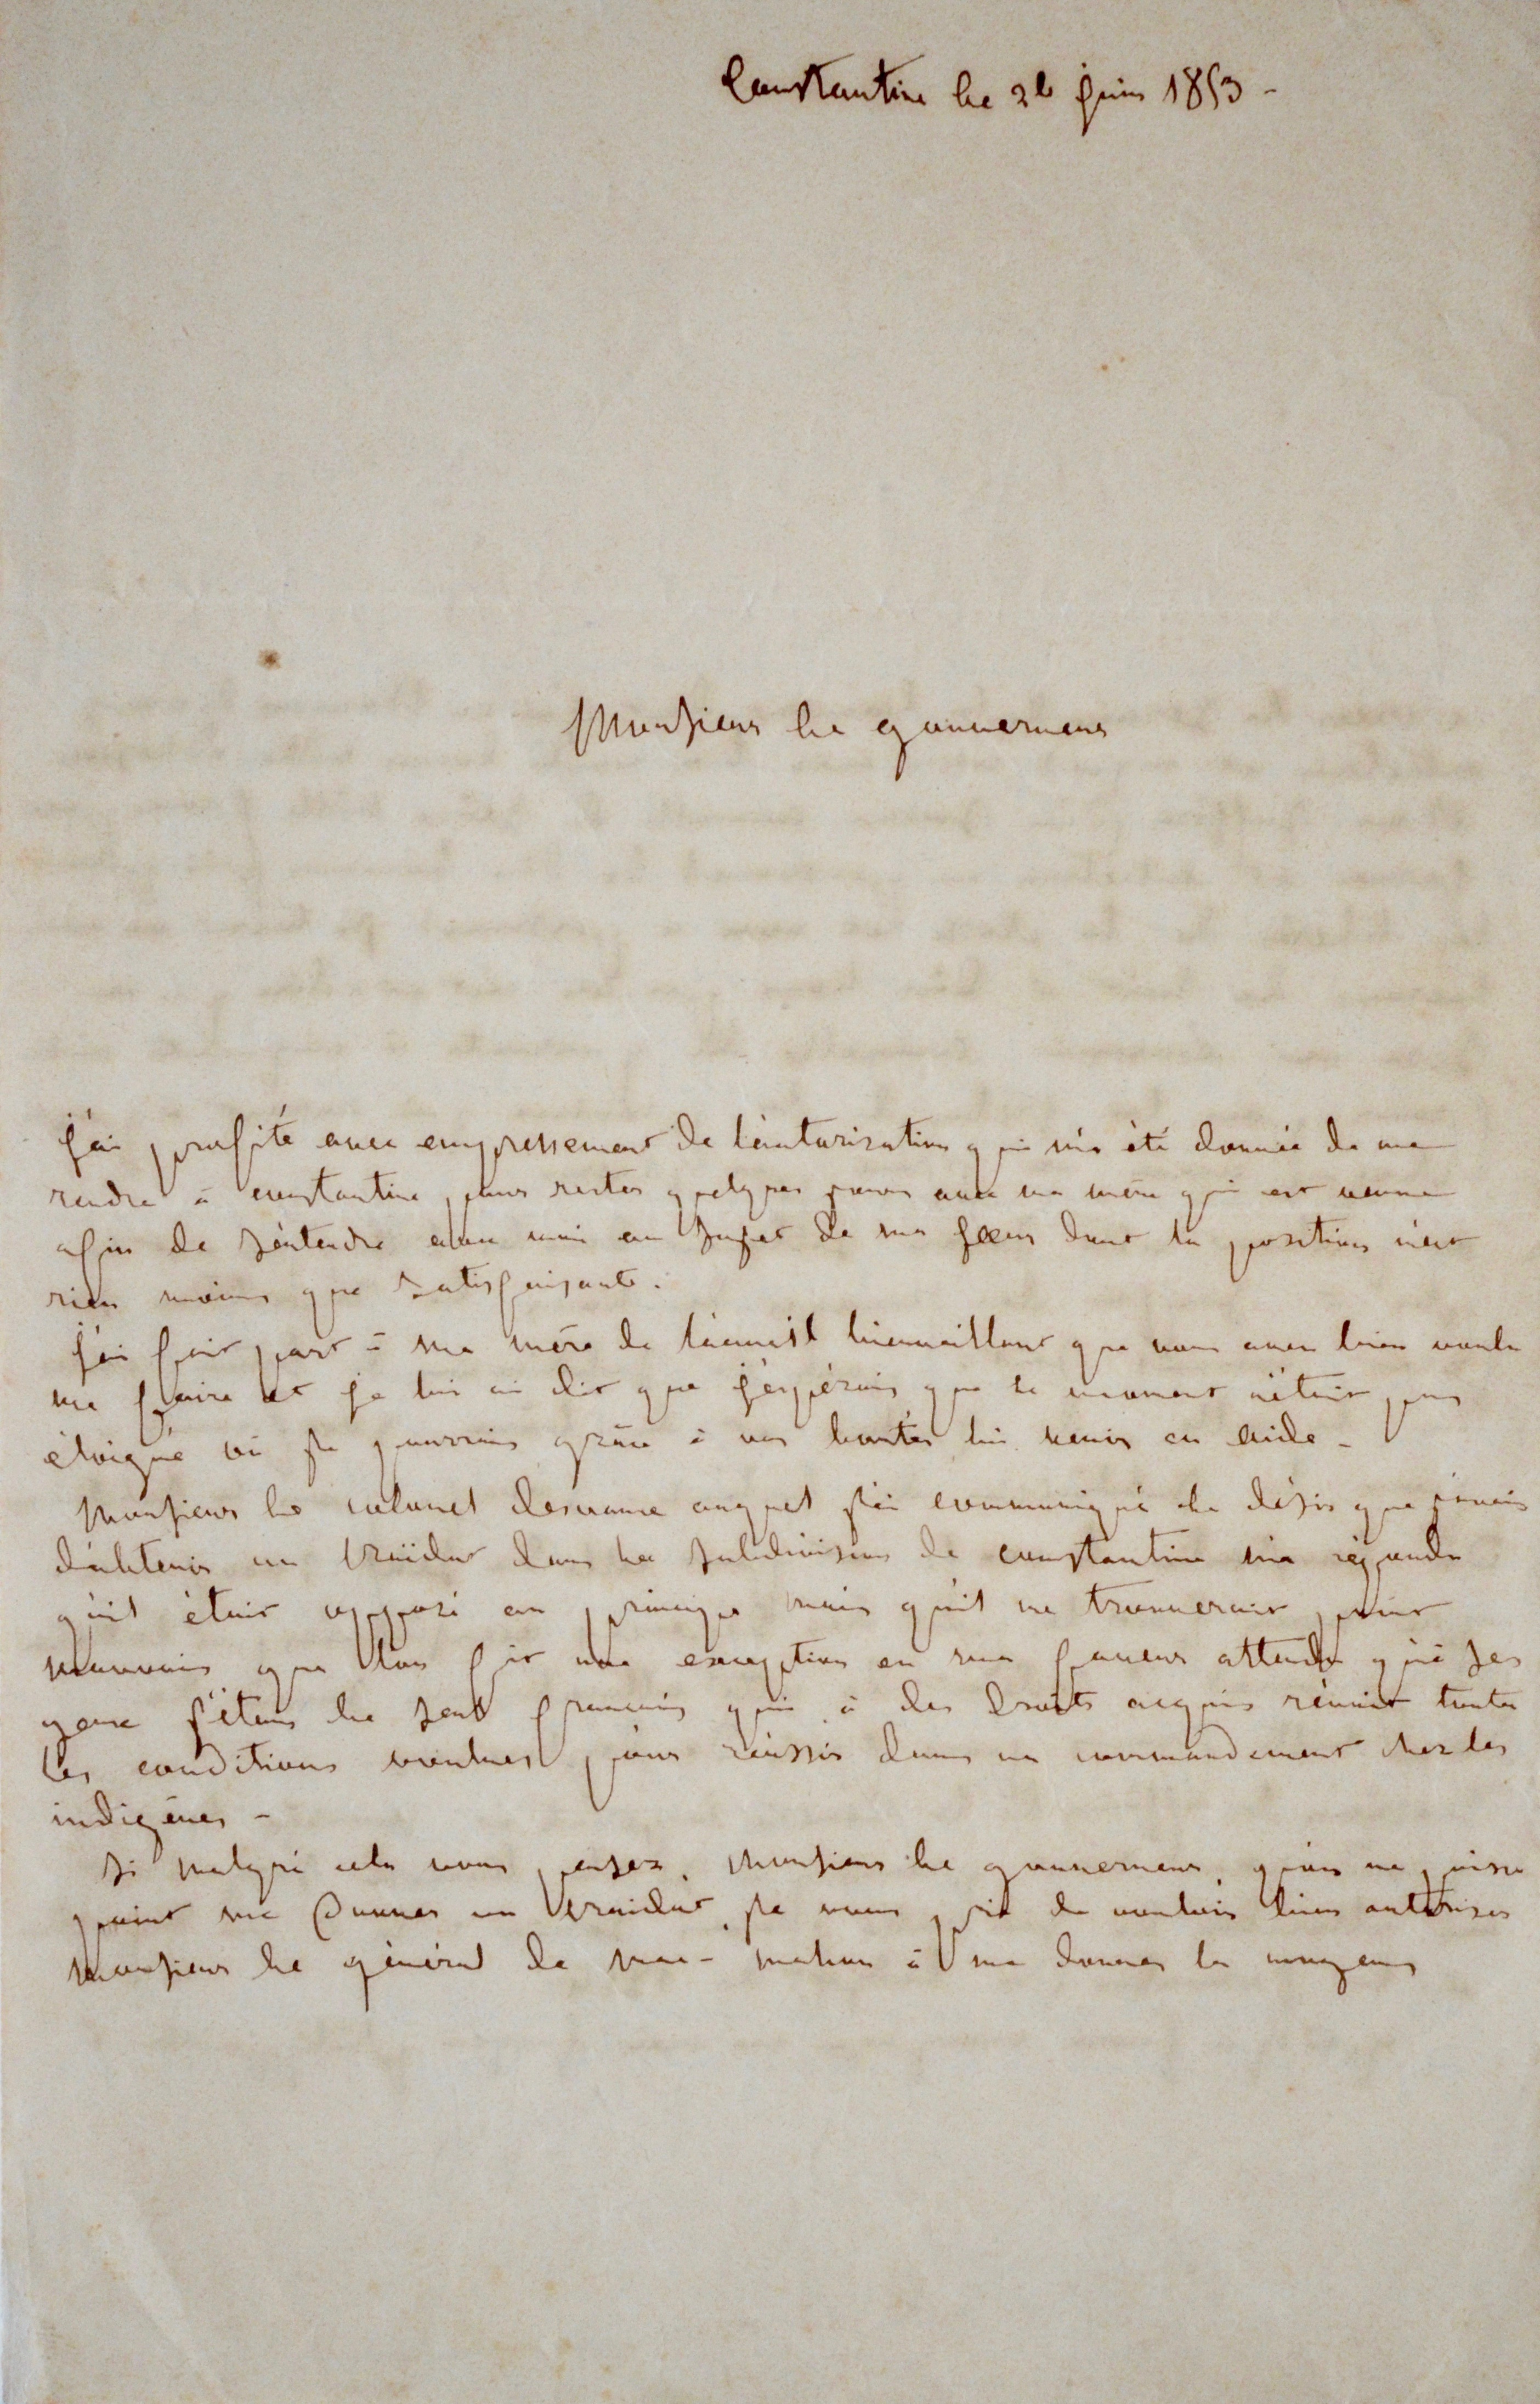 Constantine le 26 juin 1853 -
Monsieur le gouverneur
j'ai profité avec empressement de l'autorisation qui m'a été donnée de me
rendre à constantine pour rester quelques jours avec ma mère qui est venue
afin de s'entendre avec moi au sujet de ma sœur dont la position n'est
rien moins que satisfaisante.
j'ai fait part à ma mère de l'accueil bienveillant que vous avez bien voulu
me faire et je lui ai dit que j'espérais que le moment n'était pas
éloigné où je pourrais grâce à vos bontés lui venir en aide -
Monsieur le colonel desvaux auquel j'ai communiqué le désir que j'avais
d'obtenir un kaïdat dans la subdivision de constantine m'a répondu
qu'il était opposé au principe mais qu'il ne trouverait point
mauvais que l'on fit une exception en ma faveur attendu qu'à ses
yeux j'étais le seul français qui à des droits acquis réunit toutes
les conditions voulues pour réussir dans un commandement chez les
indigènes -
Si malgré cela vous pensez, Monsieur le gouverneur, qu'on ne puisse
point me donner un kaïdat, je vous prie de vouloir bien autoriser
Monsieur le général de mac-mahon à me donner les moyens